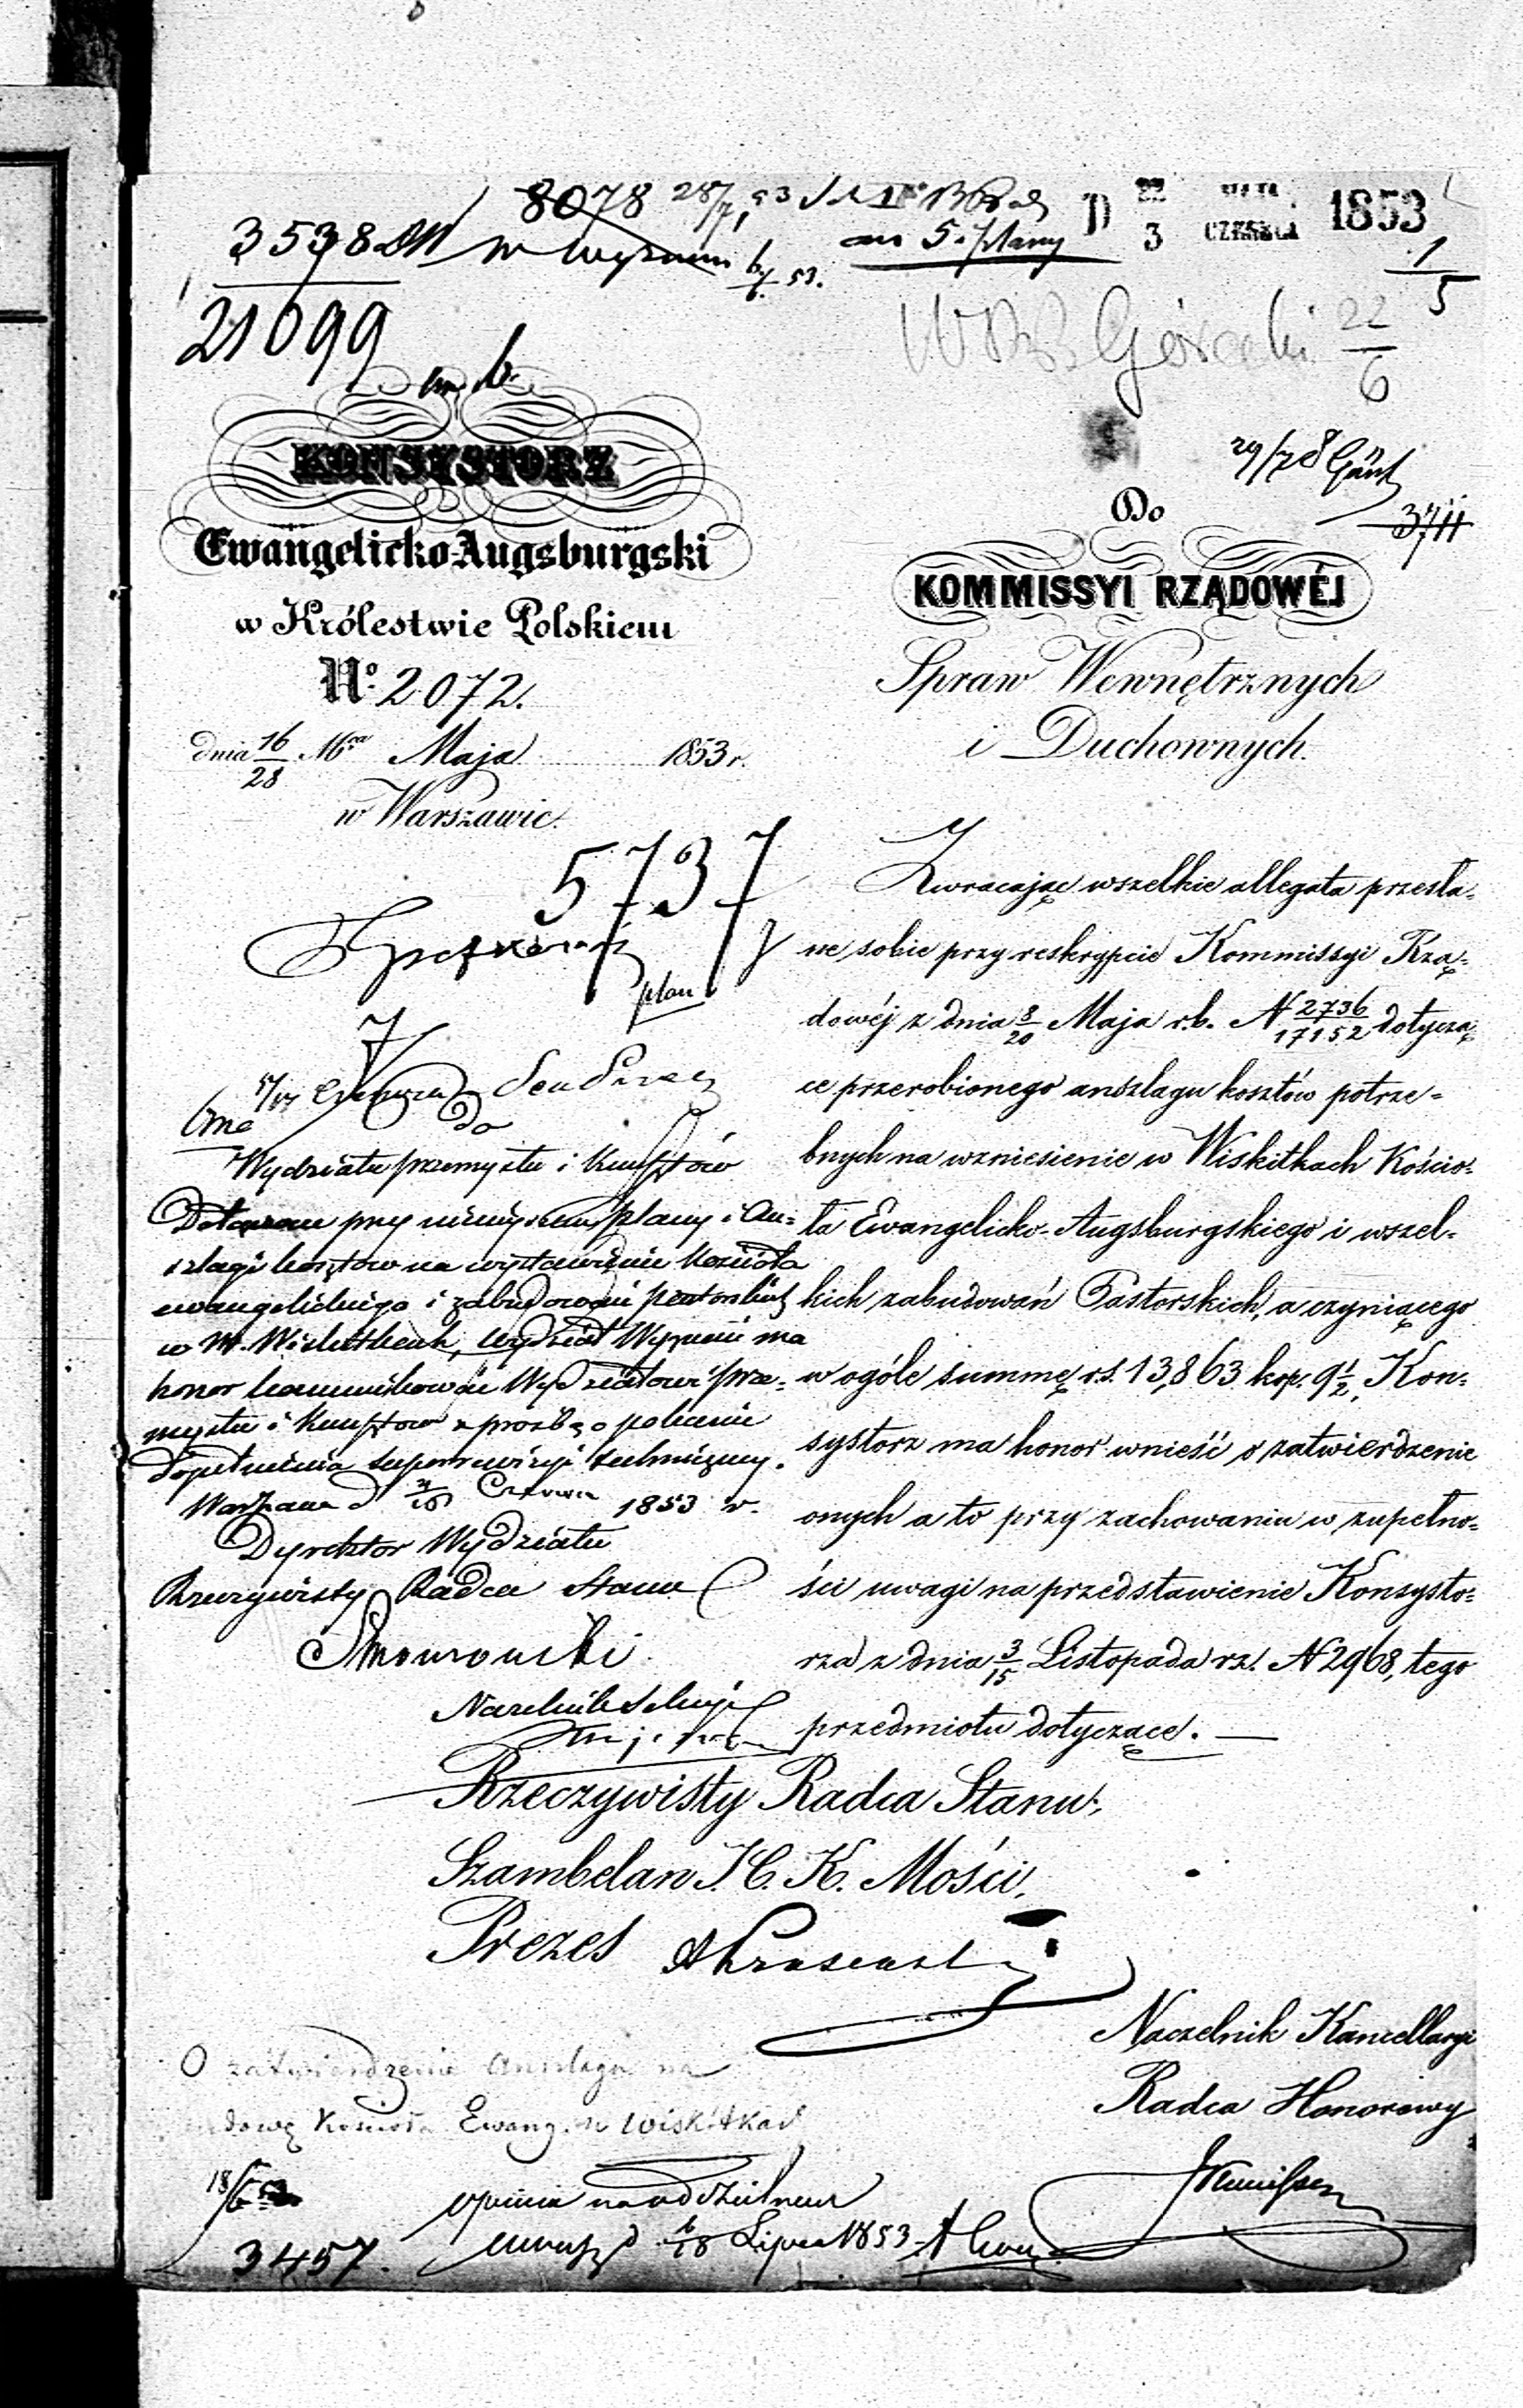 8078 28/7 53
3538
w Wyznan 6/6 53.
an 5. plany
D 22 MAJA 1853
3 CZERWCA
1
5
21099
Górecki 22
6
KONSYSTORZ
Ewangelicko-Augsburgski
w Królestwie Polskiem
No. 2072.
dnia 16/28 Mca Maja 1853 r.
w Warszawie.
29/7 8
Do
KOMMISSYI RZĄDOWÉJ
Spraw Wewnętrznych
i Duchownych.
5737
plan
do
Wydziału przemysłu i Kunsztów
Dołączone przy niniejszem plany i an=
szlagi kosztów na wystawienie Kościoła
ewangelickiego i zabudowań pastorskich
w M. Wiskitkach, Wydział Wyznań ma
honor kommunikować Wydziałowi prze=
mysłu i Kunsztów z prośbą o polecenie
dopełnienia superrewizyi technicznej.
Warszawa d Czerwca 1853 r.
Dyrektor Wydziału
Rzeczywisty Radca Stanu
Naczelnik Sekcyi
Zwracając wszelkie allegata przesła=
ne sobie przy reskrypcie Kommissyi Rzą=
dowéj z dnia 8/20 Maja r.b. N 2736/17152 dotyczą=
ce przerobionego anszlagu kosztów potrze=
bnych na wzniesienie w Wiskitkach Kościo=
ła Ewangelicko-Augsburgskiego i wszel=
kich zabudowań Pastorskich, a czyniącego
w ogóle summę r.s. 13,863 kop. 9½, Kon=
systorz ma honor wnieść o zatwierdzenie
onych a to przy zachowaniu w zupełno=
ści uwagi na przedstawienie Konsysto=
rza z dnia 3/15 Listopada r.z. N 2968, tego
przedmiotu dotyczące. —
Rzeczywisty Radca Stanu,
Szambelan J. C. K. Mości,
Prezes
Naczelnik Kancellaryi
Radca Honorowy
O zatwierdzenie Anszlagu na
budowę Kościoła Ewang. w Wiskitkach
18/6
opinia na oddzielnem
d. 6/18 Lipca 1853
3457.